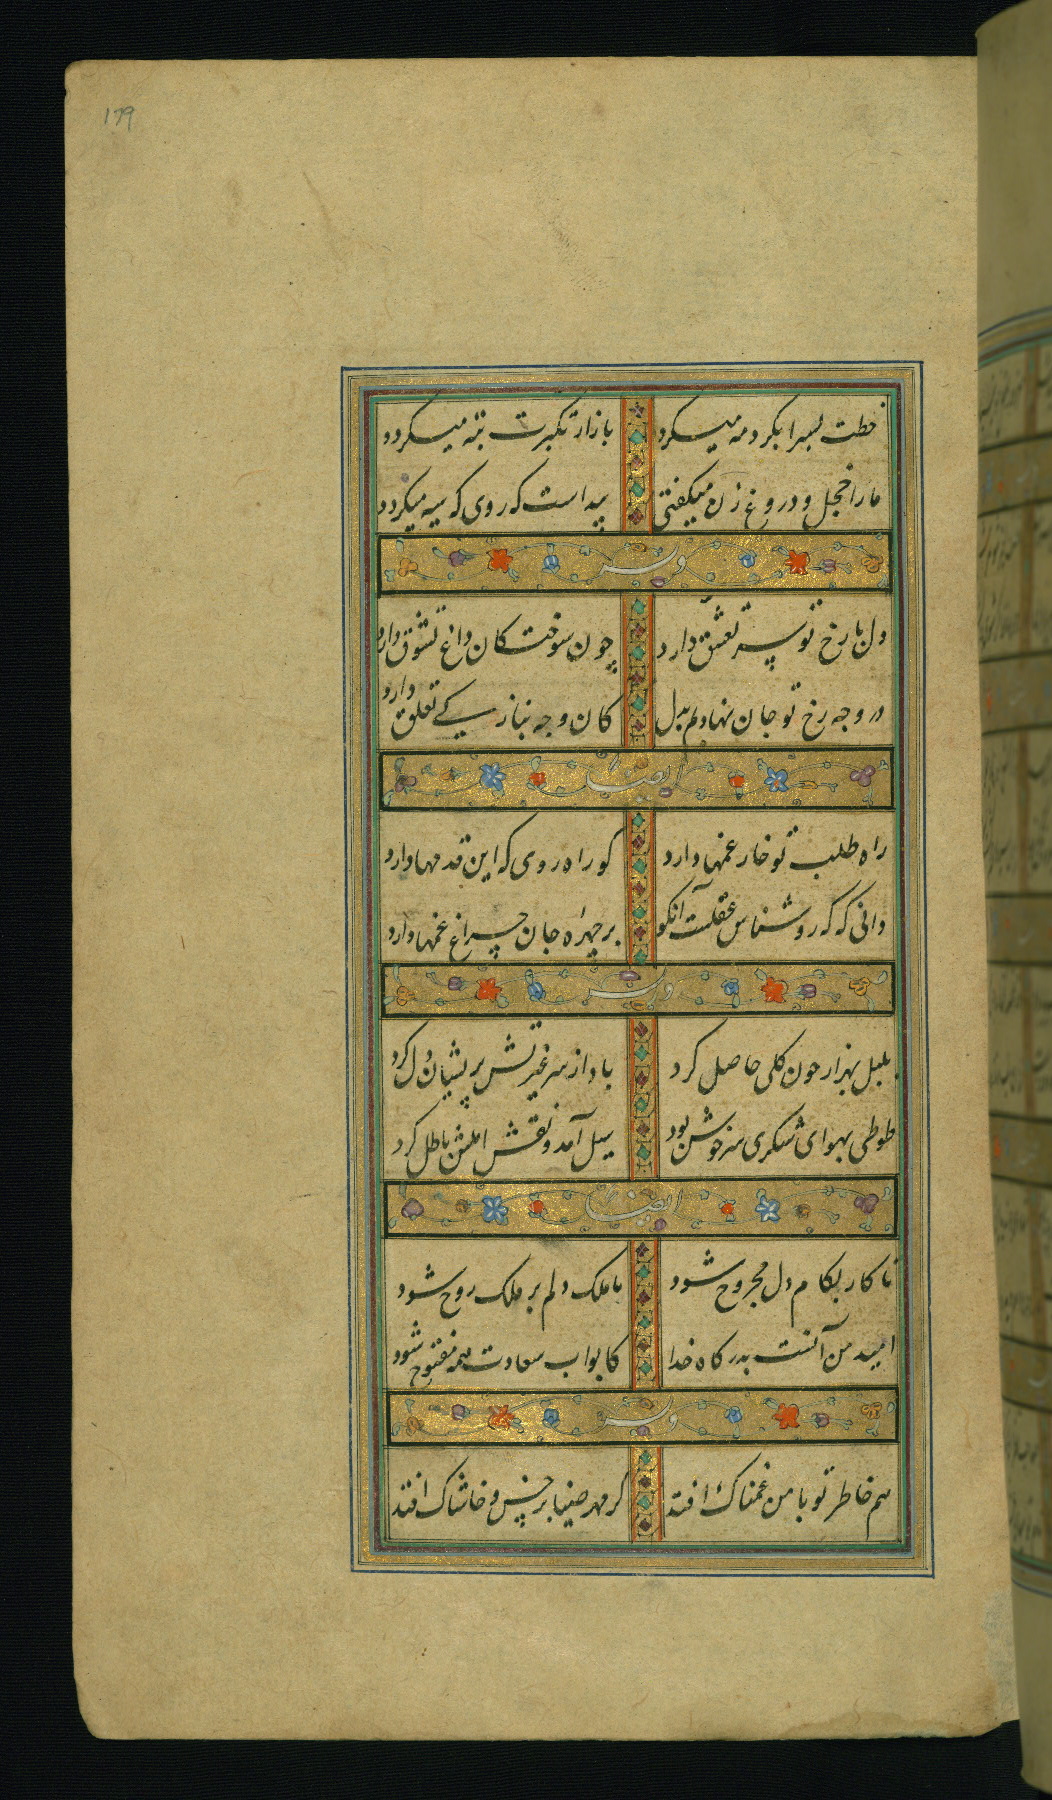 179
خطت بسرا بگرد مه میگردد بازار تکبرت تبه میگردد
ما را خجل و دروغ زن میگفتی پیداست که روی که سیه میگردد
وله
دل با رخ تو سر تعشق دارد چون سوختگان داغ تشوق دارد
در وجه رخ تو جان نهادم بدل کان وجه نیاز کی تعلق دارد
ایضا
راه طلب تو خار غمها دارد کو راه روی که این قدمها دارد
دانی که که روشناس عقلست آنکو بر چهره جان چراغ غمها دارد
وله
بلبل بهزار خون گلی حاصل کرد باد از سر غیرتش پریشان دل کرد
طوطی بهوای شکری سرخوش بود سیل آمد و نقش املش باطل کرد
ایضا
تا کار بکام دل مجروح شود تا ملک دلم بر ملک روح شود
امید من آنست بدرگاه خدا کابواب سعادت همه مفتوح شود
وله
هم خاطر تو با من غمناک افتد گر مهر ضیا بر خس و خاشاک افتد